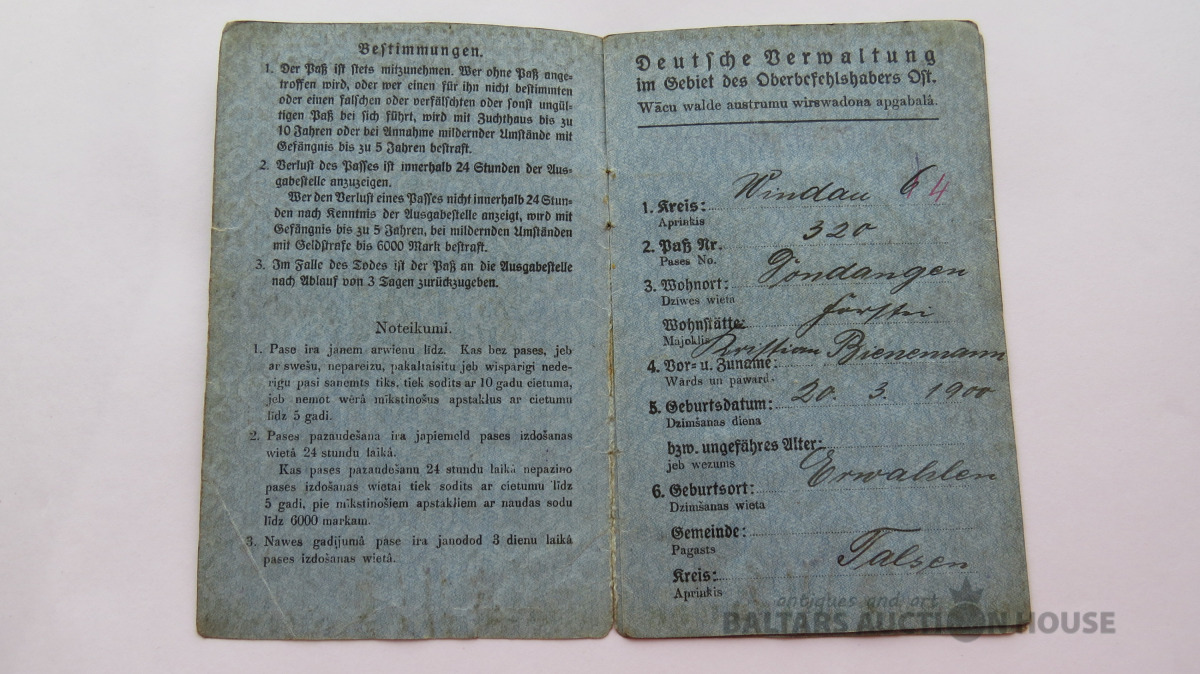 Bestimmungen.
1. Der Paß ist stets mitzunehmen. Wer ohne Paß ange-
troffen wird, oder wer einen für ihn nicht bestimmten
oder einen falschen oder verfälschten oder sonst ungül-
tigen Paß bei sich führt, wird mit Zuchthaus bis zu
10 Jahren oder bei Annahme mildernder Umstände mit
Gefängnis bis zu 5 Jahren bestraft.
2. Verlust des Passes ist innerhalb 24 Stunden der Aus-
gabestelle anzuzeigen.
Wer den Verlust eines Passes nicht innerhalb 24 Stun-
den nach Kenntnis der Ausgabestelle anzeigt, wird mit
Gefängnis bis zu 5 Jahren, bei mildernden Umständen
mit Geldstrafe bis 6000 Mark bestraft.
3. Im Falle des Todes ist der Paß an die Ausgabestelle
nach Ablauf von 3 Tagen zurückzugeben.
Noteikumi.
1. Pase ira janem arwienu līdz. Kas bez pases, jeb
ar swešu, nepareizu, pakaltaisitu jeb wisparigi nede-
rigu pasi saņemts tiks, tiek sodits ar 10 gadu cietuma,
jeb ņemot wērā mīkstinošus apstakļus ar cietumu
līdz 5 gadi.
2. Pases pazaudešana ira japiemeld pases izdošanas
wietâ 24 stundu laikâ.
Kas pases pazaudešanu 24 stundu laikâ nepaziņo
pases izdošanas wietai tiek sodits ar cietumu līdz
5 gadi, pie mīkstinošiem apstakļiem ar naudas sodu
līdz 6000 markam.
3. Nawes gadījumâ pase ira janodod 3 dienu laikâ
pases izdošanas wietâ.
Deutsche Verwaltung
im Gebiet des Oberbefehlshabers Ost.
Wācu walde austrumu wirswadona apgabalâ.
1. Kreis: Windau 6 4
Apriņkis
2. Paß Nr. 320
Pases No.
3. Wohnort: Dondangen
Dzīwes wieta
Wohnstätte: Förstei
Majoklis
4. Vor- u. Zuname: Kristian Bienemann
Wārds un pawārd.
5. Geburtsdatum: 20. 3. 1900
Dzimšanas diena
bzw. ungefähres Alter:
jeb wezums
6. Geburtsort: Erwahlen
Dzimšanas wieta
Gemeinde:
Pagasts
Kreis: Talsen
Apriņkis
antiques and art
BALTARS AUCTION HOUSE